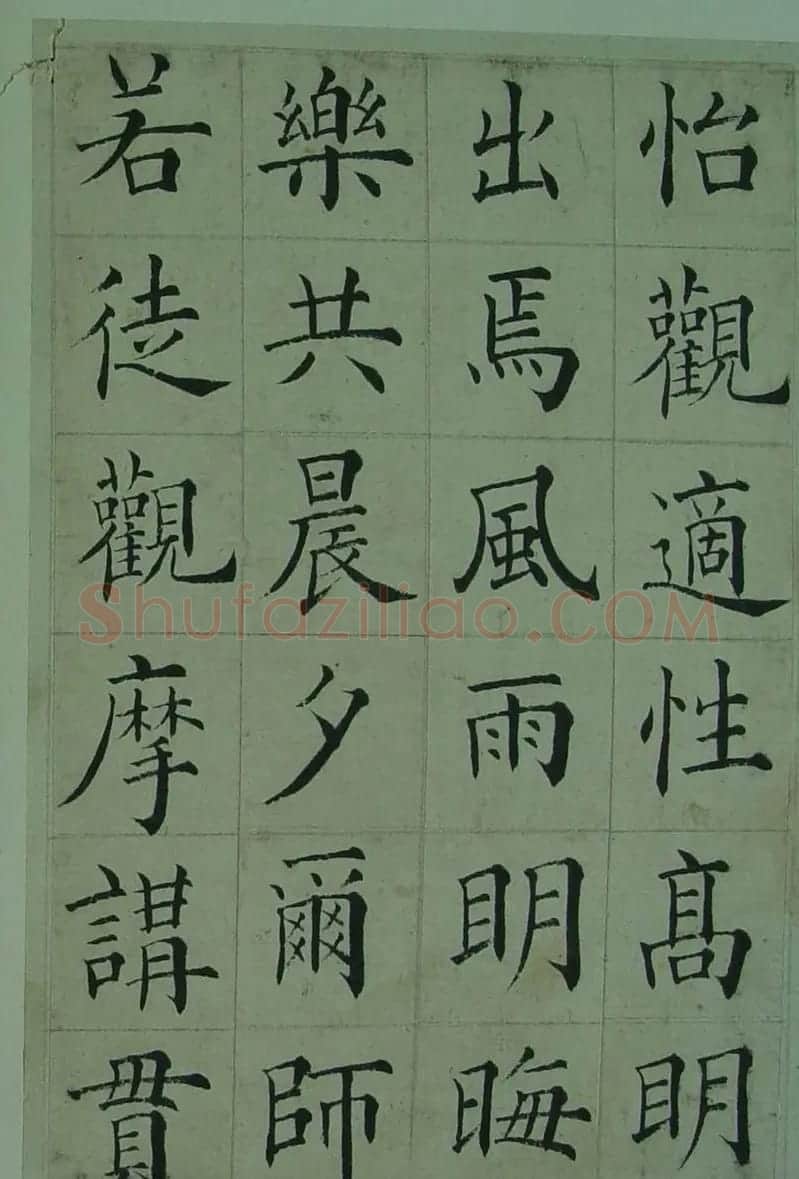 怡觀適性髙明
出焉風雨明晦
樂共晨夕爾師
若徒觀摩講貫
Shufaziliao.COM